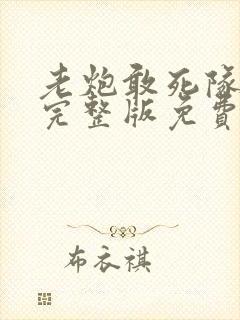 老炮敢死隊
完整版免費
布衣祺